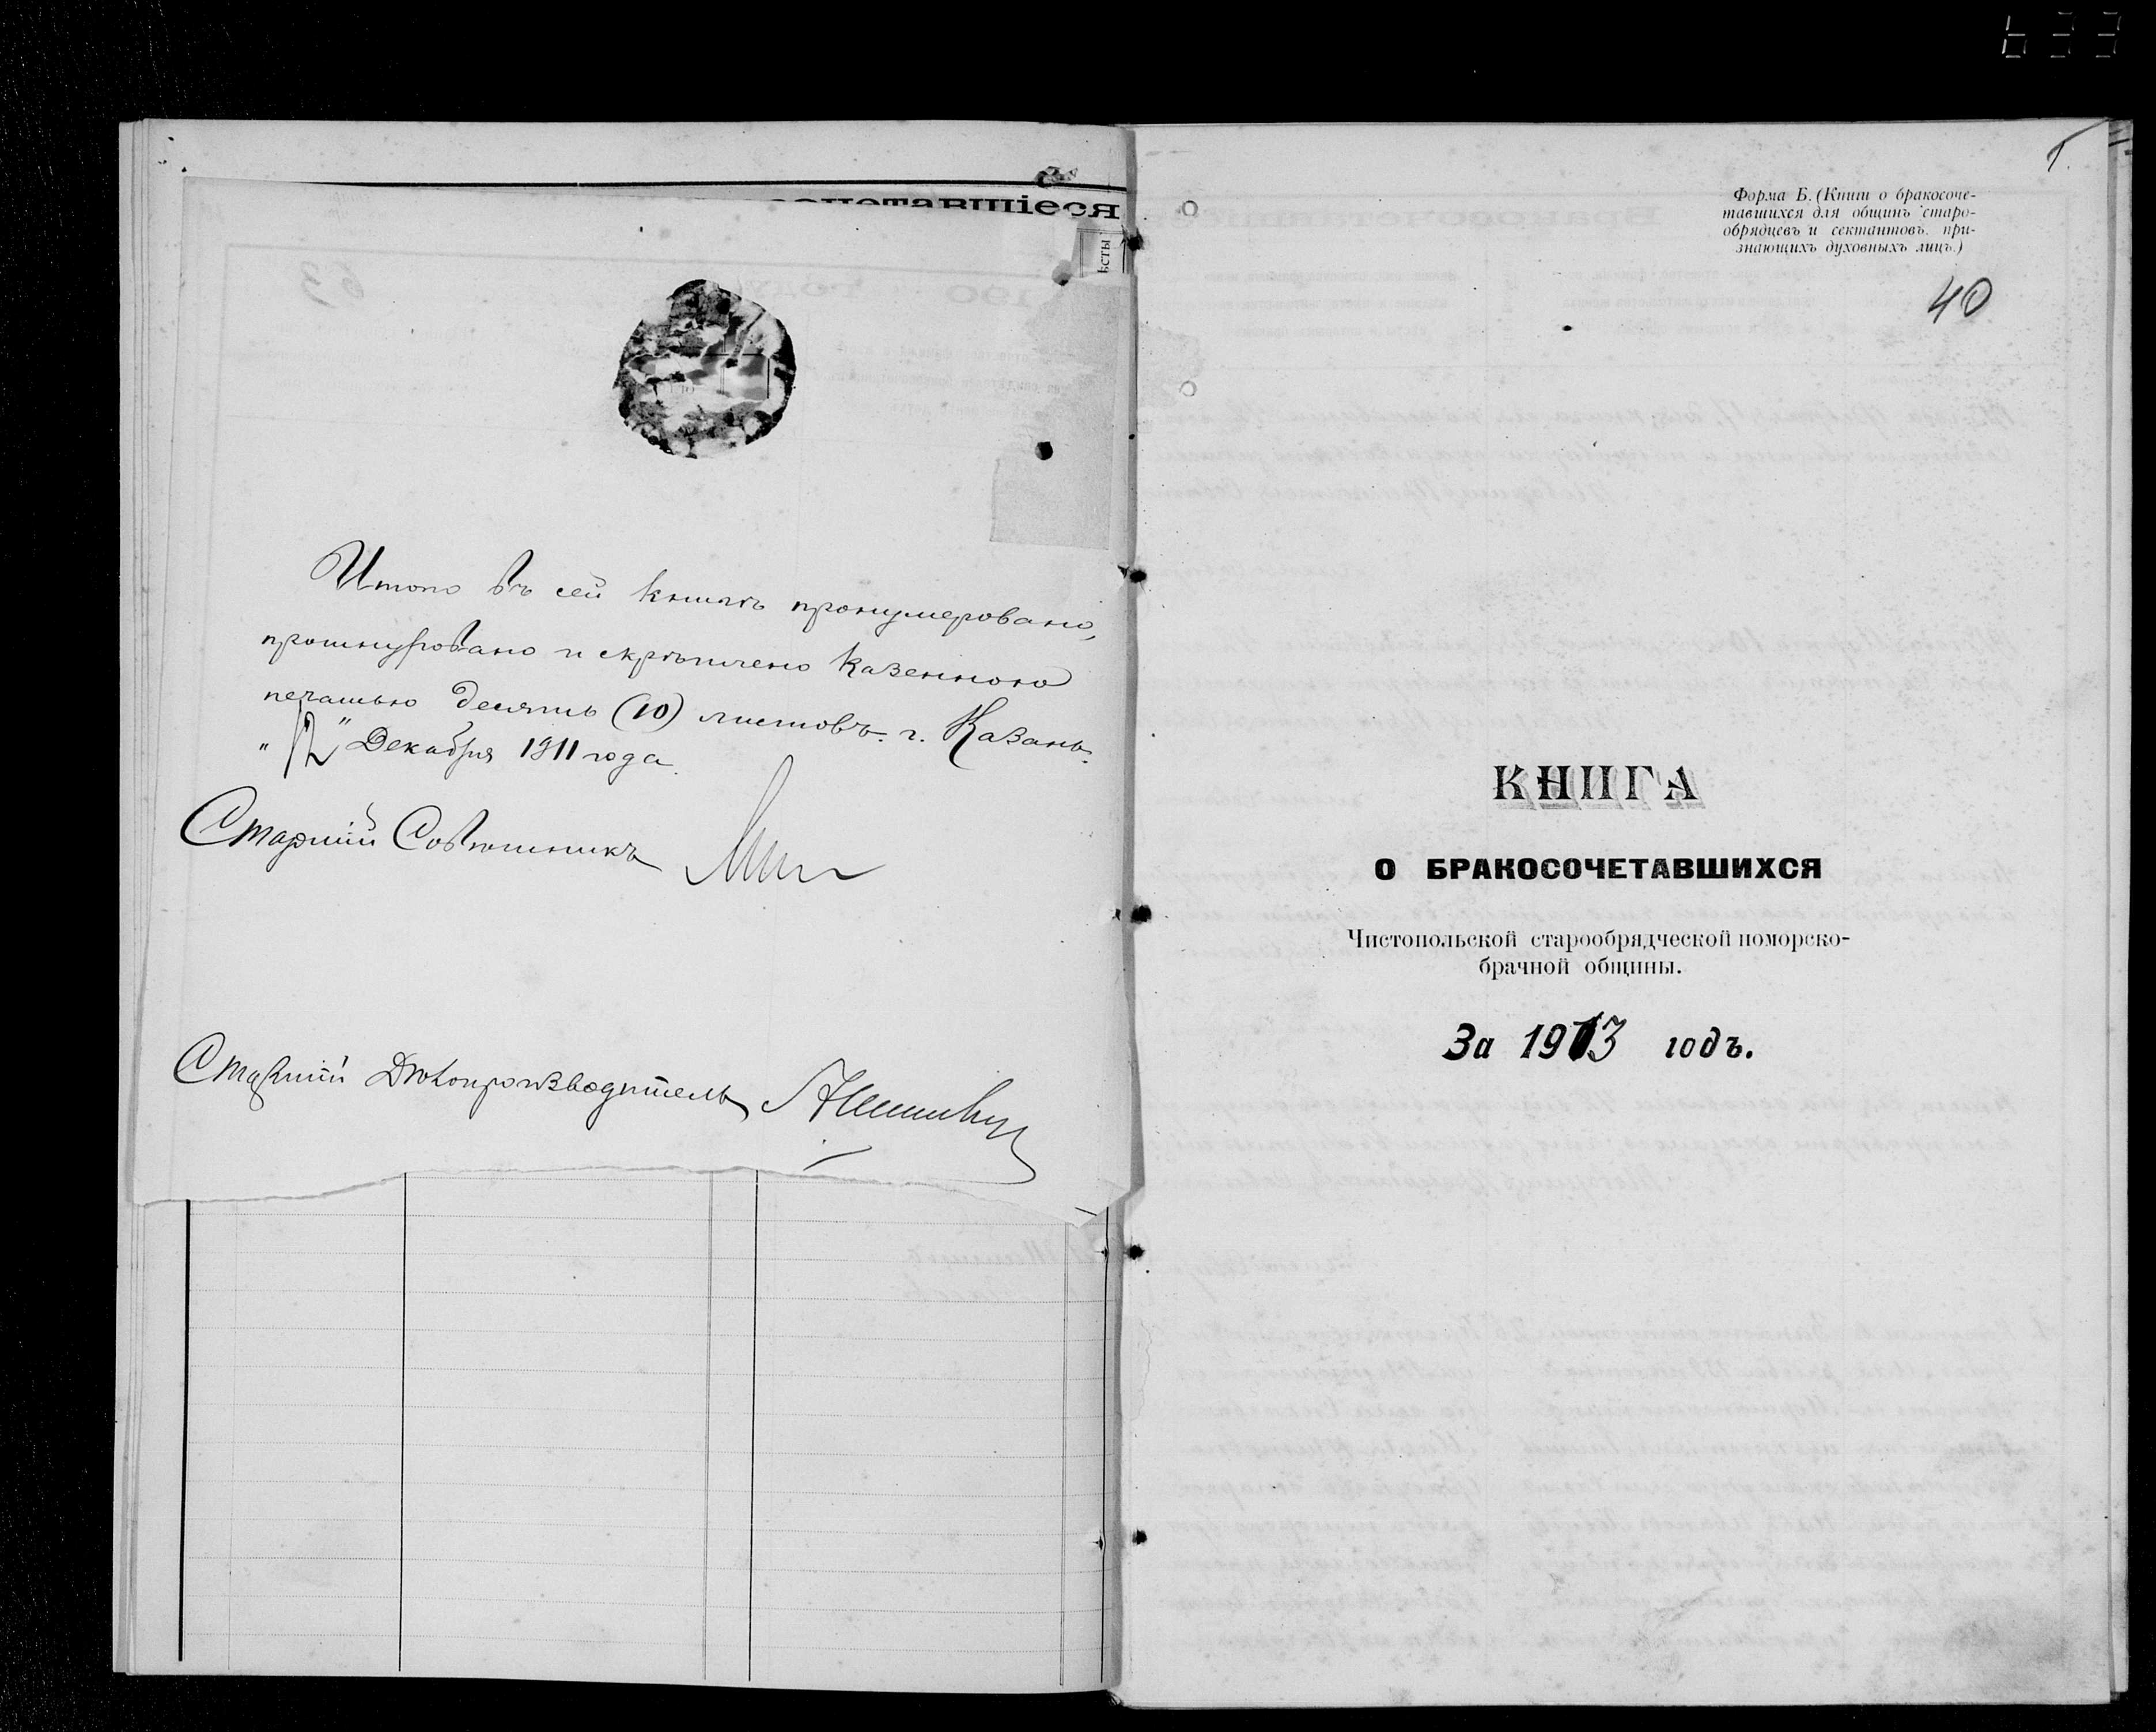 сочетавшіеся
ѣсты
Итого въ сей книгѣ пронумеровано,
прошнуровано и скрѣплено казенною
печатью десять (10) листовъ. г. Казань.
„12" Декабря 1911 года.
Старшій Совѣтникъ
Старшій Дѣлопроизводитель
1.
Форма Б. (Книги о бракосоче-
тавшихся для общинъ старо-
обрядцевъ и сектантовъ, при-
знающихъ духовныхъ лицъ.)
40
КНИГА
О БРАКОСОЧЕТАВШИХСЯ
Чистопольской старообрядческой поморско-
брачной общины.
За 1913 годъ.